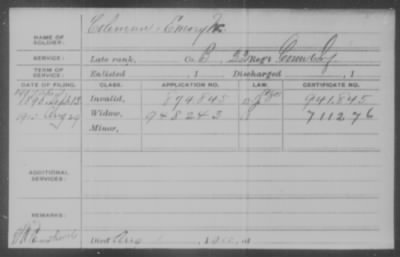 NAME OF SOLDIER: Coleman, Emory
SERVICE: Late rank, Co. B, 22 Reg't Conn Inf
TERM OF SERVICE: Enlisted , 1 Discharged , 1
DATE OF FILING. CLASS. APPLICATION NO. LAW. CERTIFICATE NO.
1890 Sept 13 Invalid, 894845 941.845
Aug 29 Widow, 948243 711276
Minor,
ADDITIONAL SERVICES:
REMARKS:
Died Aug , 1 , at